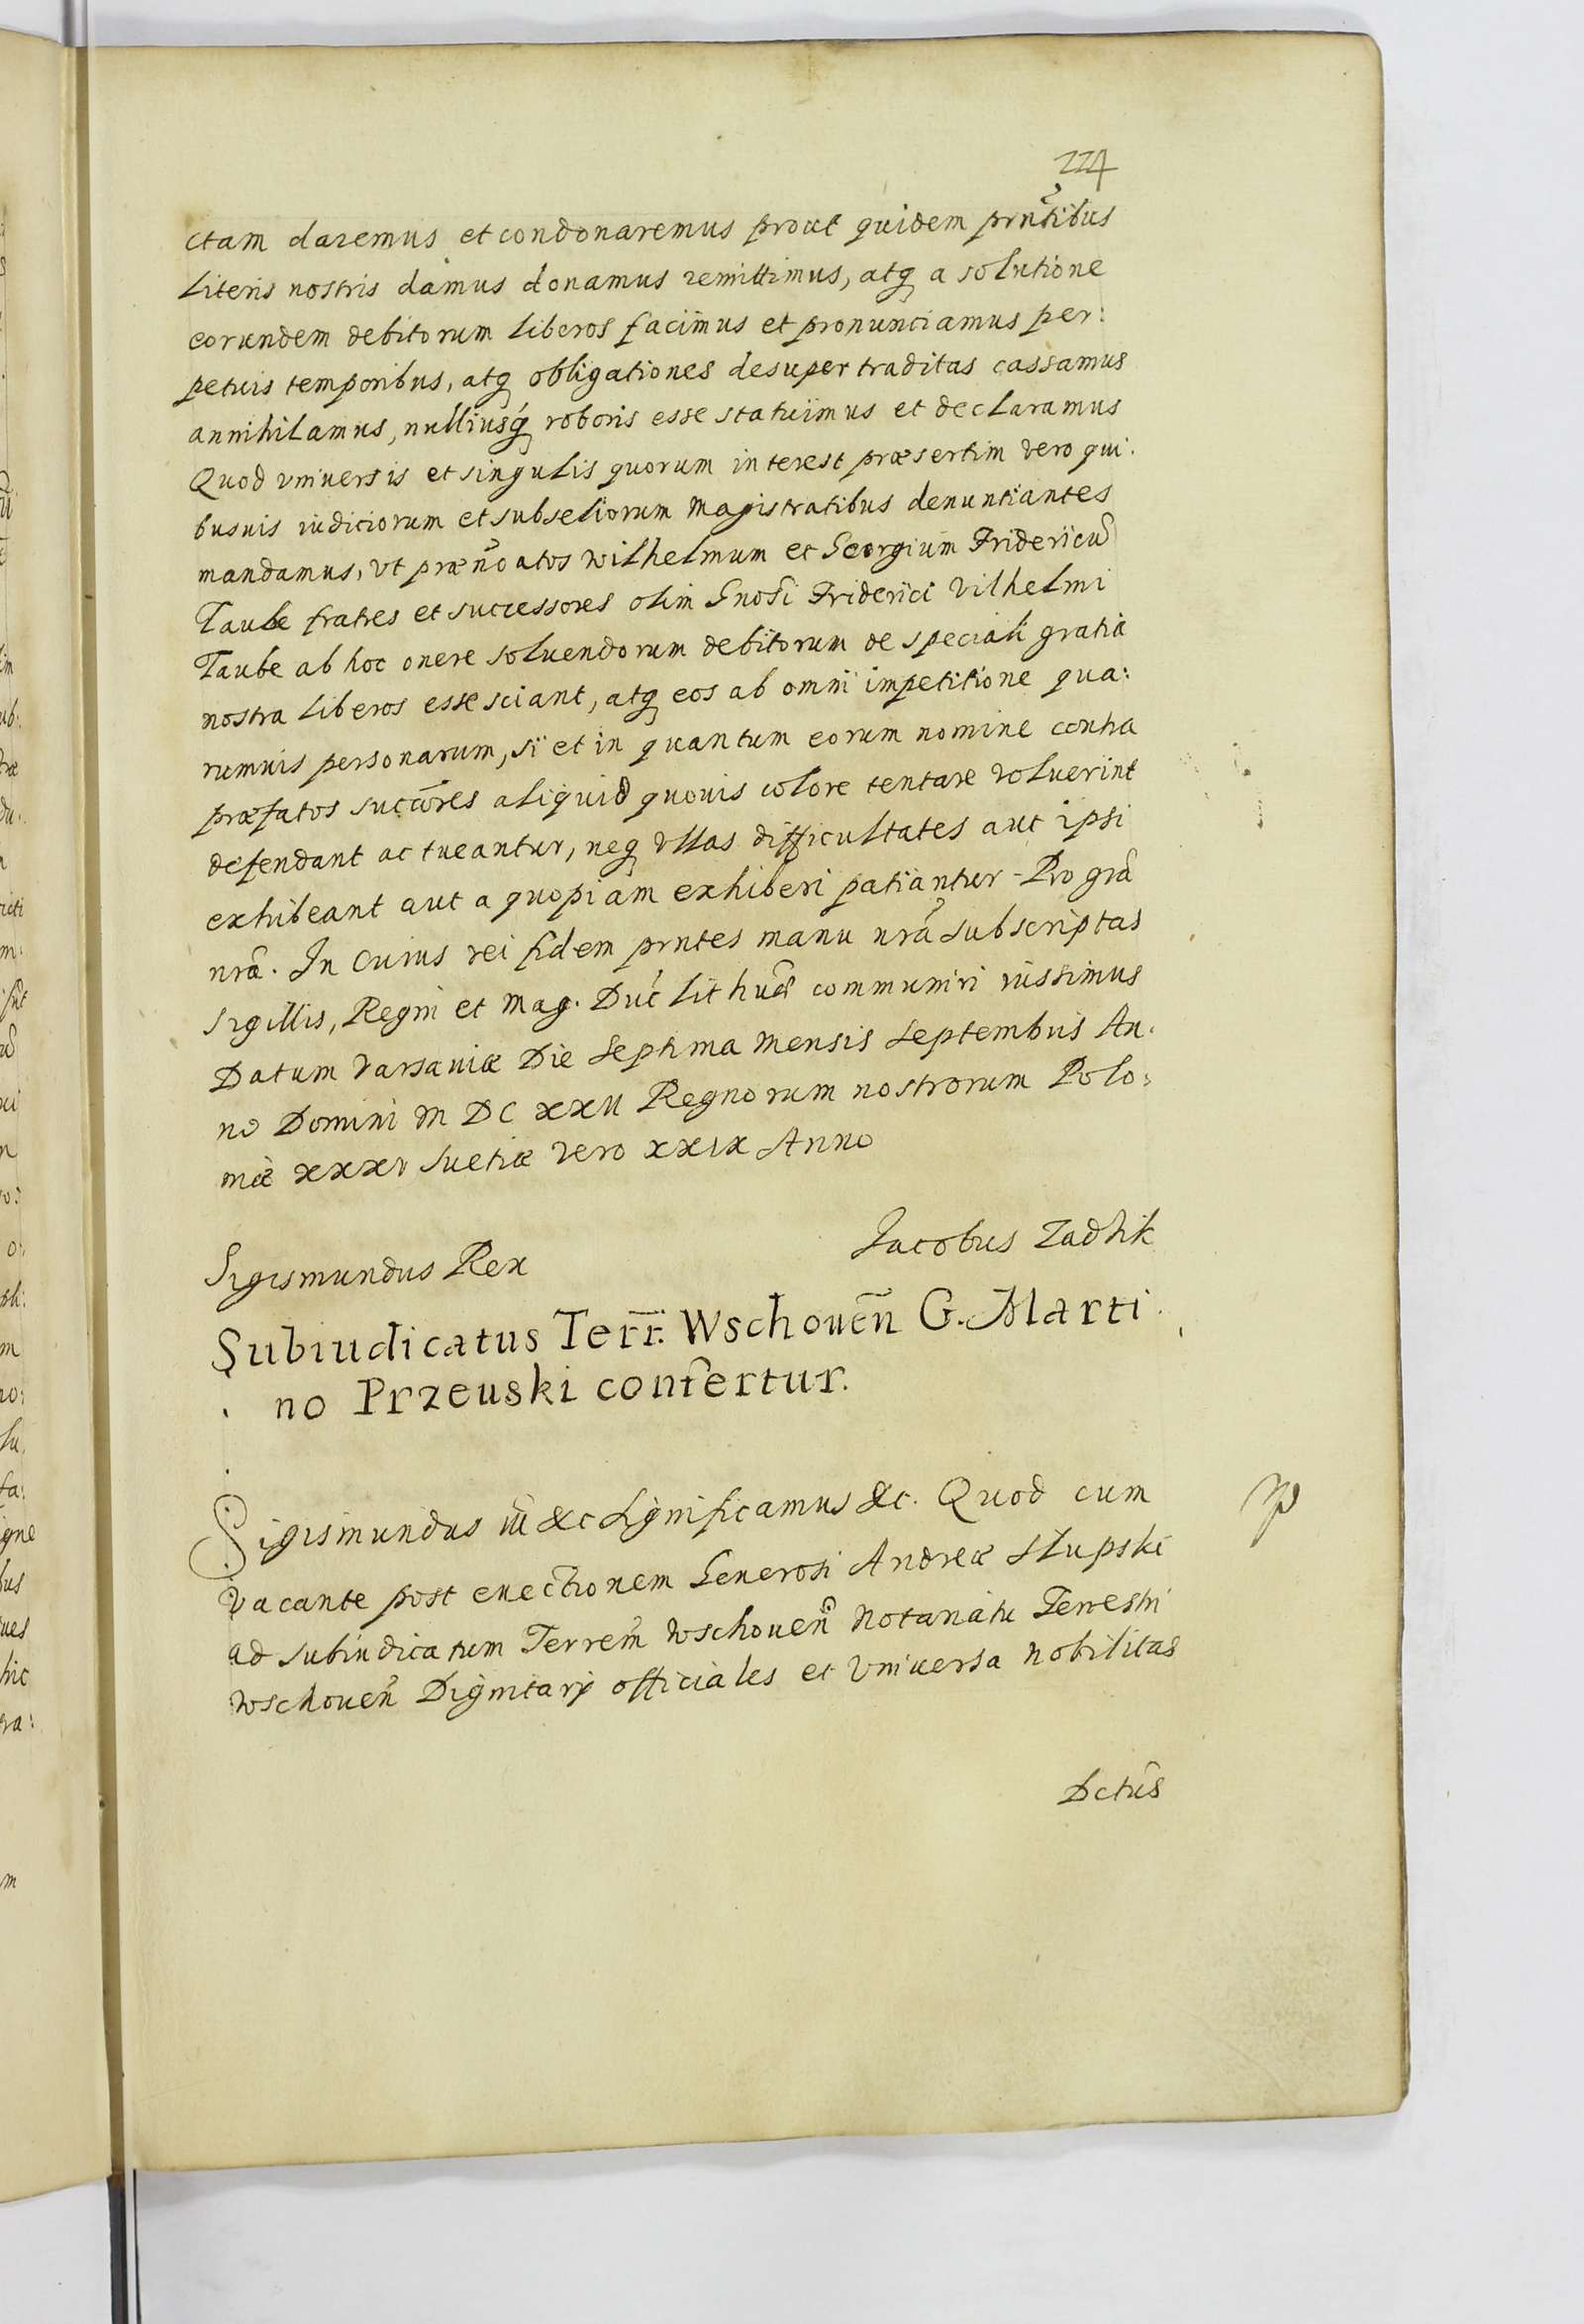 224
ctam daremus et condonaremus prout quidem prñtibus
literis nostris damus donamus remittimus, atq̨ a solutione
eorundem debitorum liberos facimus et pronunciamus per:
petuis temporibus, atq̨ obligationes desuper traditas cassamus
annihilamus, nulliusq̨ roboris esse statuimus et declaramus
Quod vniversis et singulis quorum interest præsertim vero qui:
busuis iudiciorum et subseliorum Magistratibus denuntiantes
mandamus, vt prænõatos Wilhelmum et Georgium Fridericũ
Taube fratres et successores olim Gnosi Friderici Vilhelmi
Taube ab hoc onere soluendorum debitorum de speciali gratia
nostra liberos esse sciant, atq̨ eos ab omni impetitione qua:
rumuis personarum, si et in quantum eorum nomine contra
præfatos succõres aliquid quouis colore tentare voluerint
defendant ac tueantur, neq̨ vllas difficultates aut ipsi
exhibeant aut a quopiam exhiberi patiantur - Pro grã
nrã. In cuius rei fidem prntes manu nrã subscriptas
sigillis, Regni et Mag. Duc̃ Lithuæ̃ communiri iussimus
Datum Varsaviæ Die Septima Mensis Septembris An.
no Domini M DC XXII Regnorum nostrorum Polo:
niæ XXXV Suetiæ vero XXIX Anno
Sigismundus Rex
Jacobus Zadzik
Subiudicatus Terr̃. Wschoueñ G. Marti.
no Przeuski confertur.
Sigismundus iii &c Significamus &c. Quod cum
p
vacante post euectionem Generosi Andreæ Słupski
ad subiudicatum Terreñ Wschoueñ Notariatu Terrestri
Wschoueñ Dignitarij officiales et vniuersa nobilitas
Dctũs